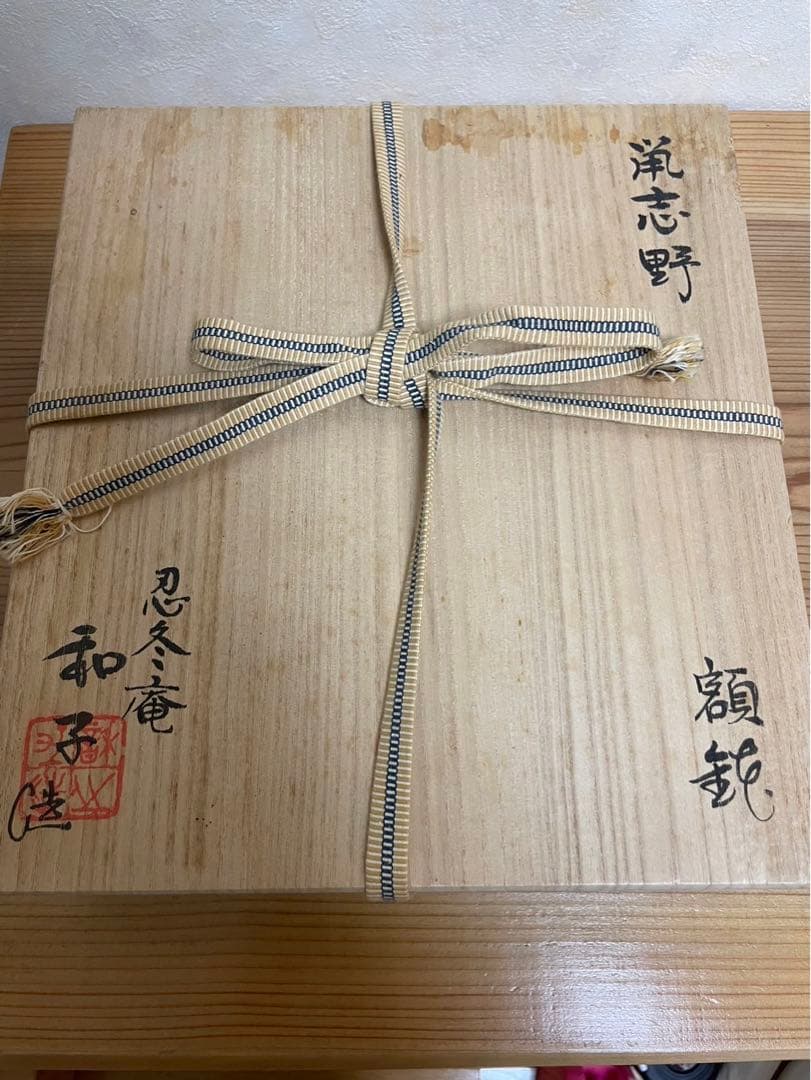 鼡志野
額鉢
忍冬庵
和子造